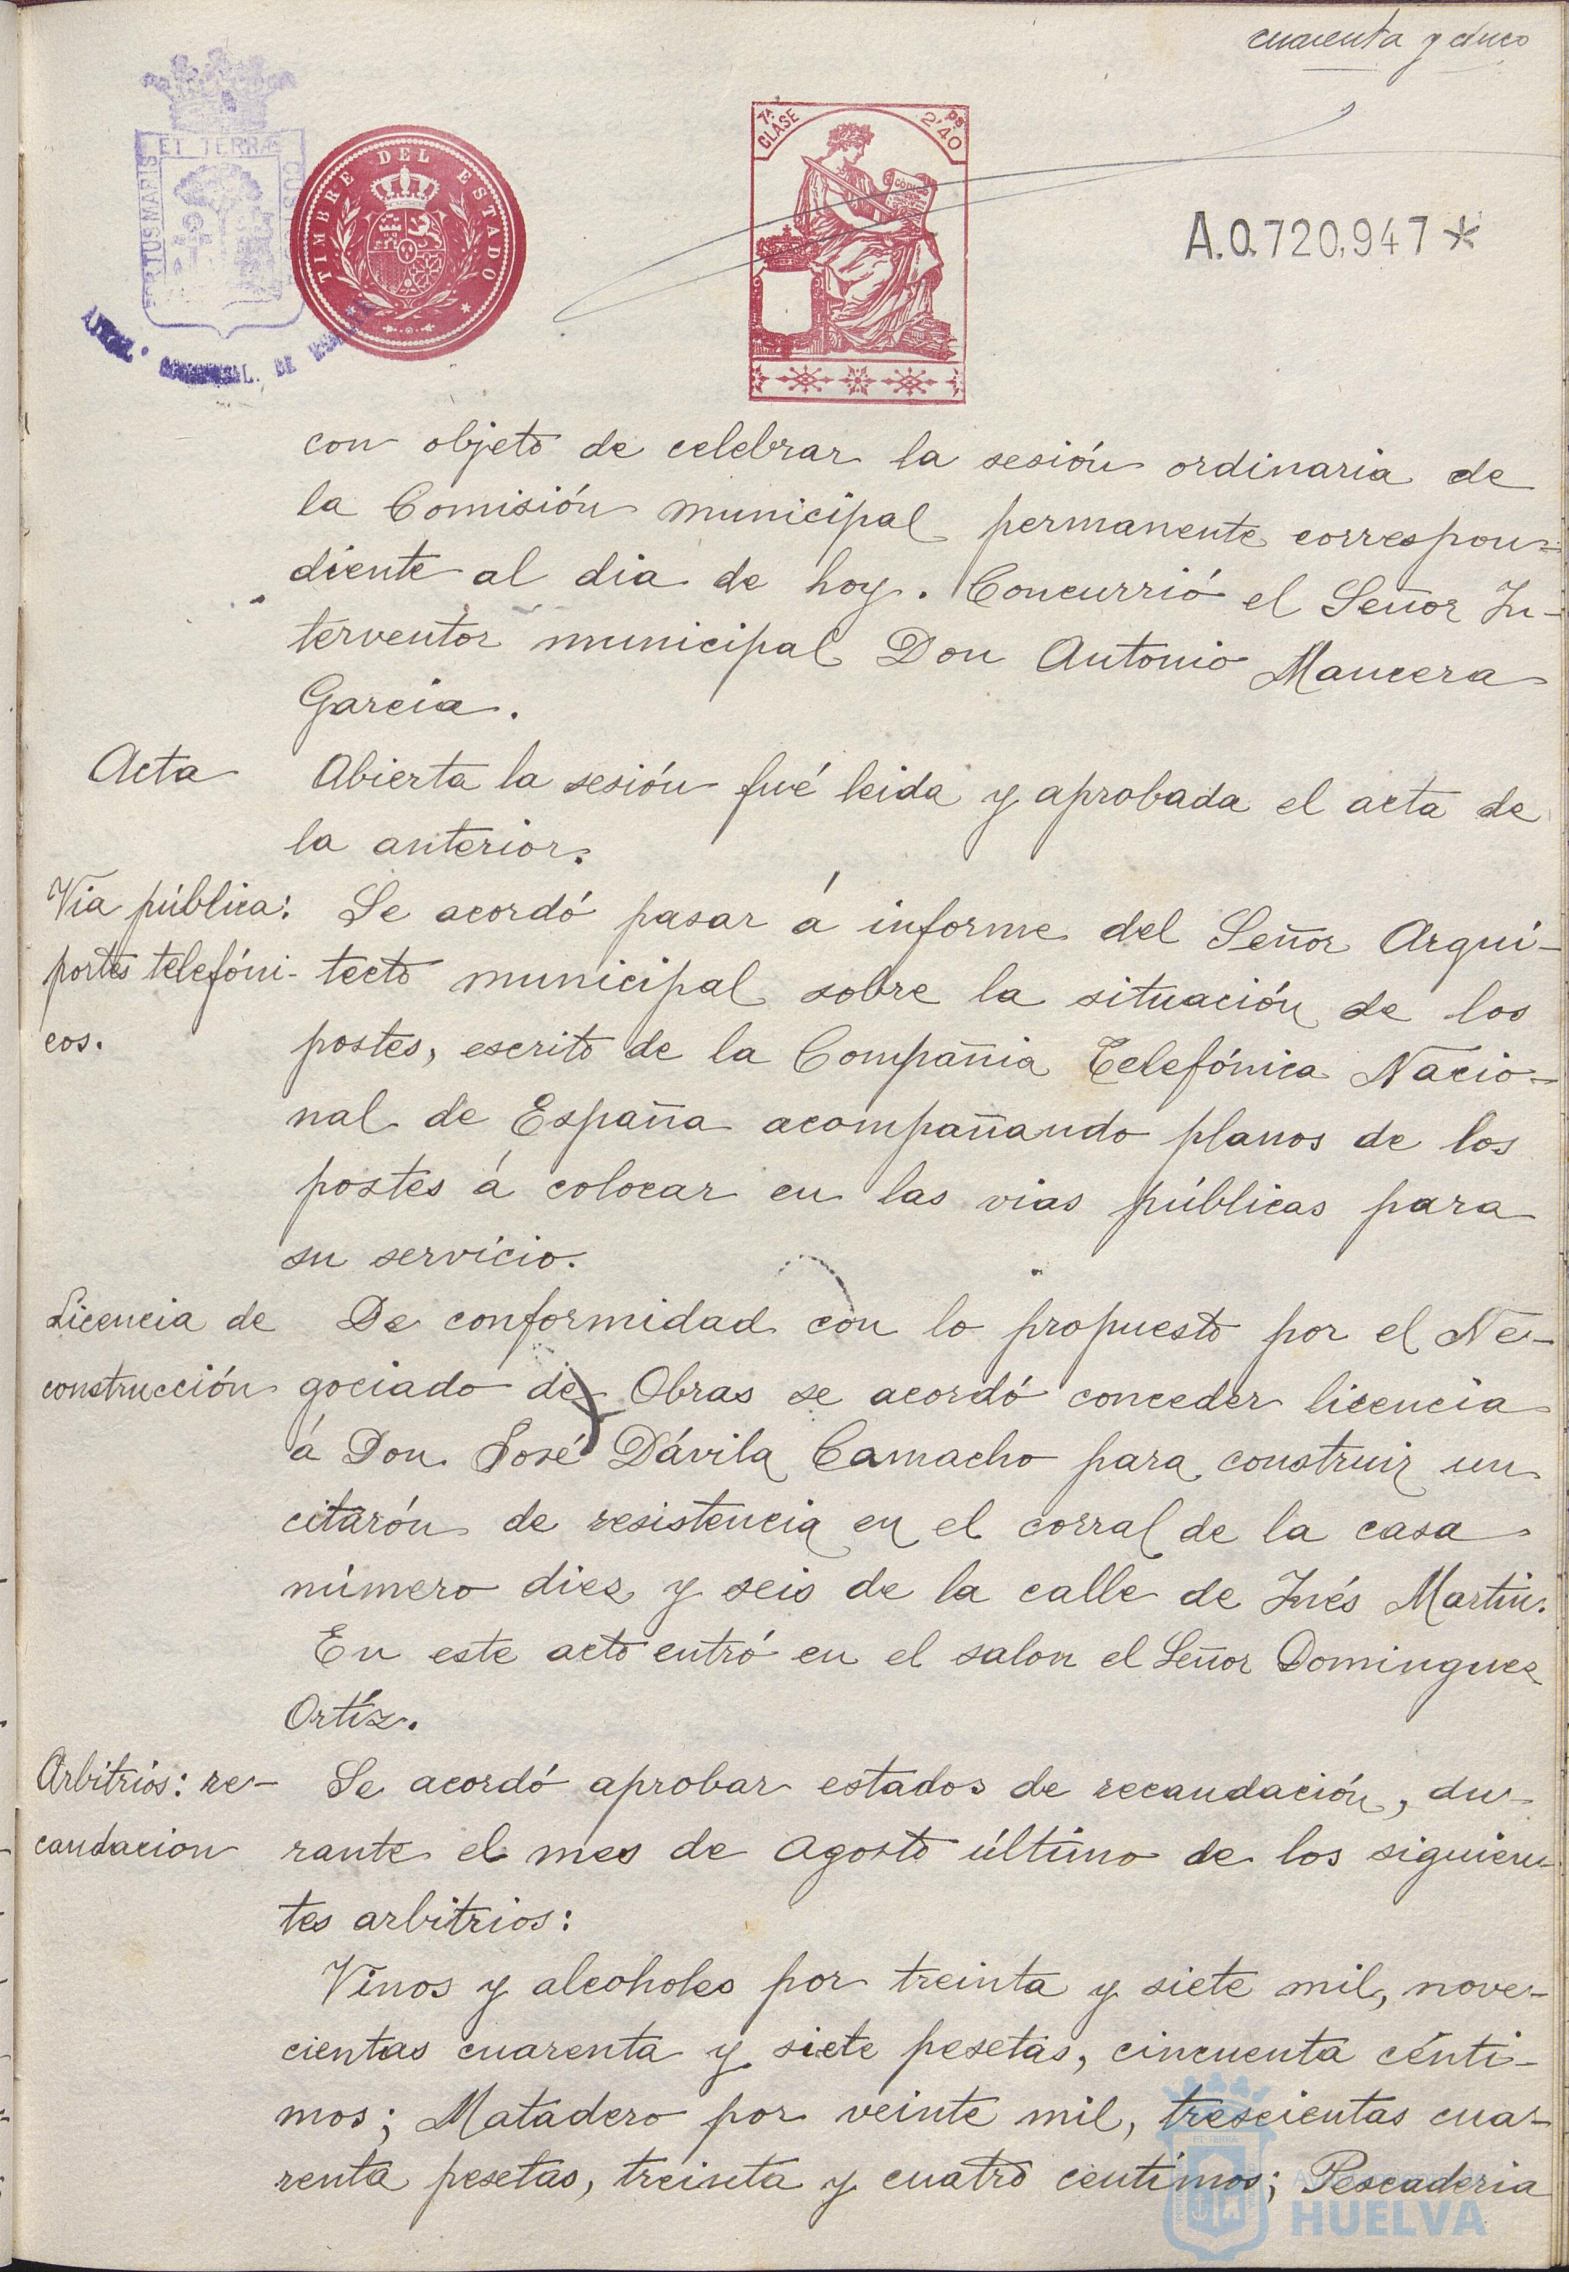 cuarenta y cinco
ET TERRÆ
PORTUS MARIS
CUS
TIMBRE DEL ESTADO
7ª CLASE
2'40 ps
A.0.720,947 *
DE
con objeto de celebrar la sesión ordinaria de
la Comisión municipal permanente correspon=
diente al dia de hoy. Concurrió el Señor In-
terventor municipal Don Antonio Mancera
Garcia.
Acta
Abierta la sesión fué leida y aprobada el acta de
la anterior.
Via pública:
postes telefóni-
cos.
Se acordó pasar á informe del Señor Arqui-
tecto municipal sobre la situación de los
postes, escrito de la Compañia Telefónica Nacio-
nal de España acompañando planos de los
postes á colocar en las vias públicas para
su servicio.
Licencia de
construcción
De conformidad con lo propuesto por el Ne-
gociado de Obras se acordó conceder licencia
á Don José Dávila Camacho para construir un
citarón de resistencia en el corral de la casa
número diez y seis de la calle de Inés Martin.
En este acto entró en el salon el Señor Dominguez
Ortíz.
Arbitrios: re-
caudacion
Se acordó aprobar estados de recaudación, du-
rante el mes de Agosto último de los siguien-
tes arbitrios:
Vinos y alcoholes por treinta y siete mil, nove-
cientas cuarenta y siete pesetas, cincuenta cénti-
mos; Matadero por veinte mil, trescientas cua-
renta pesetas, treinta y cuatro centimos; Pescaderia
HUELVA